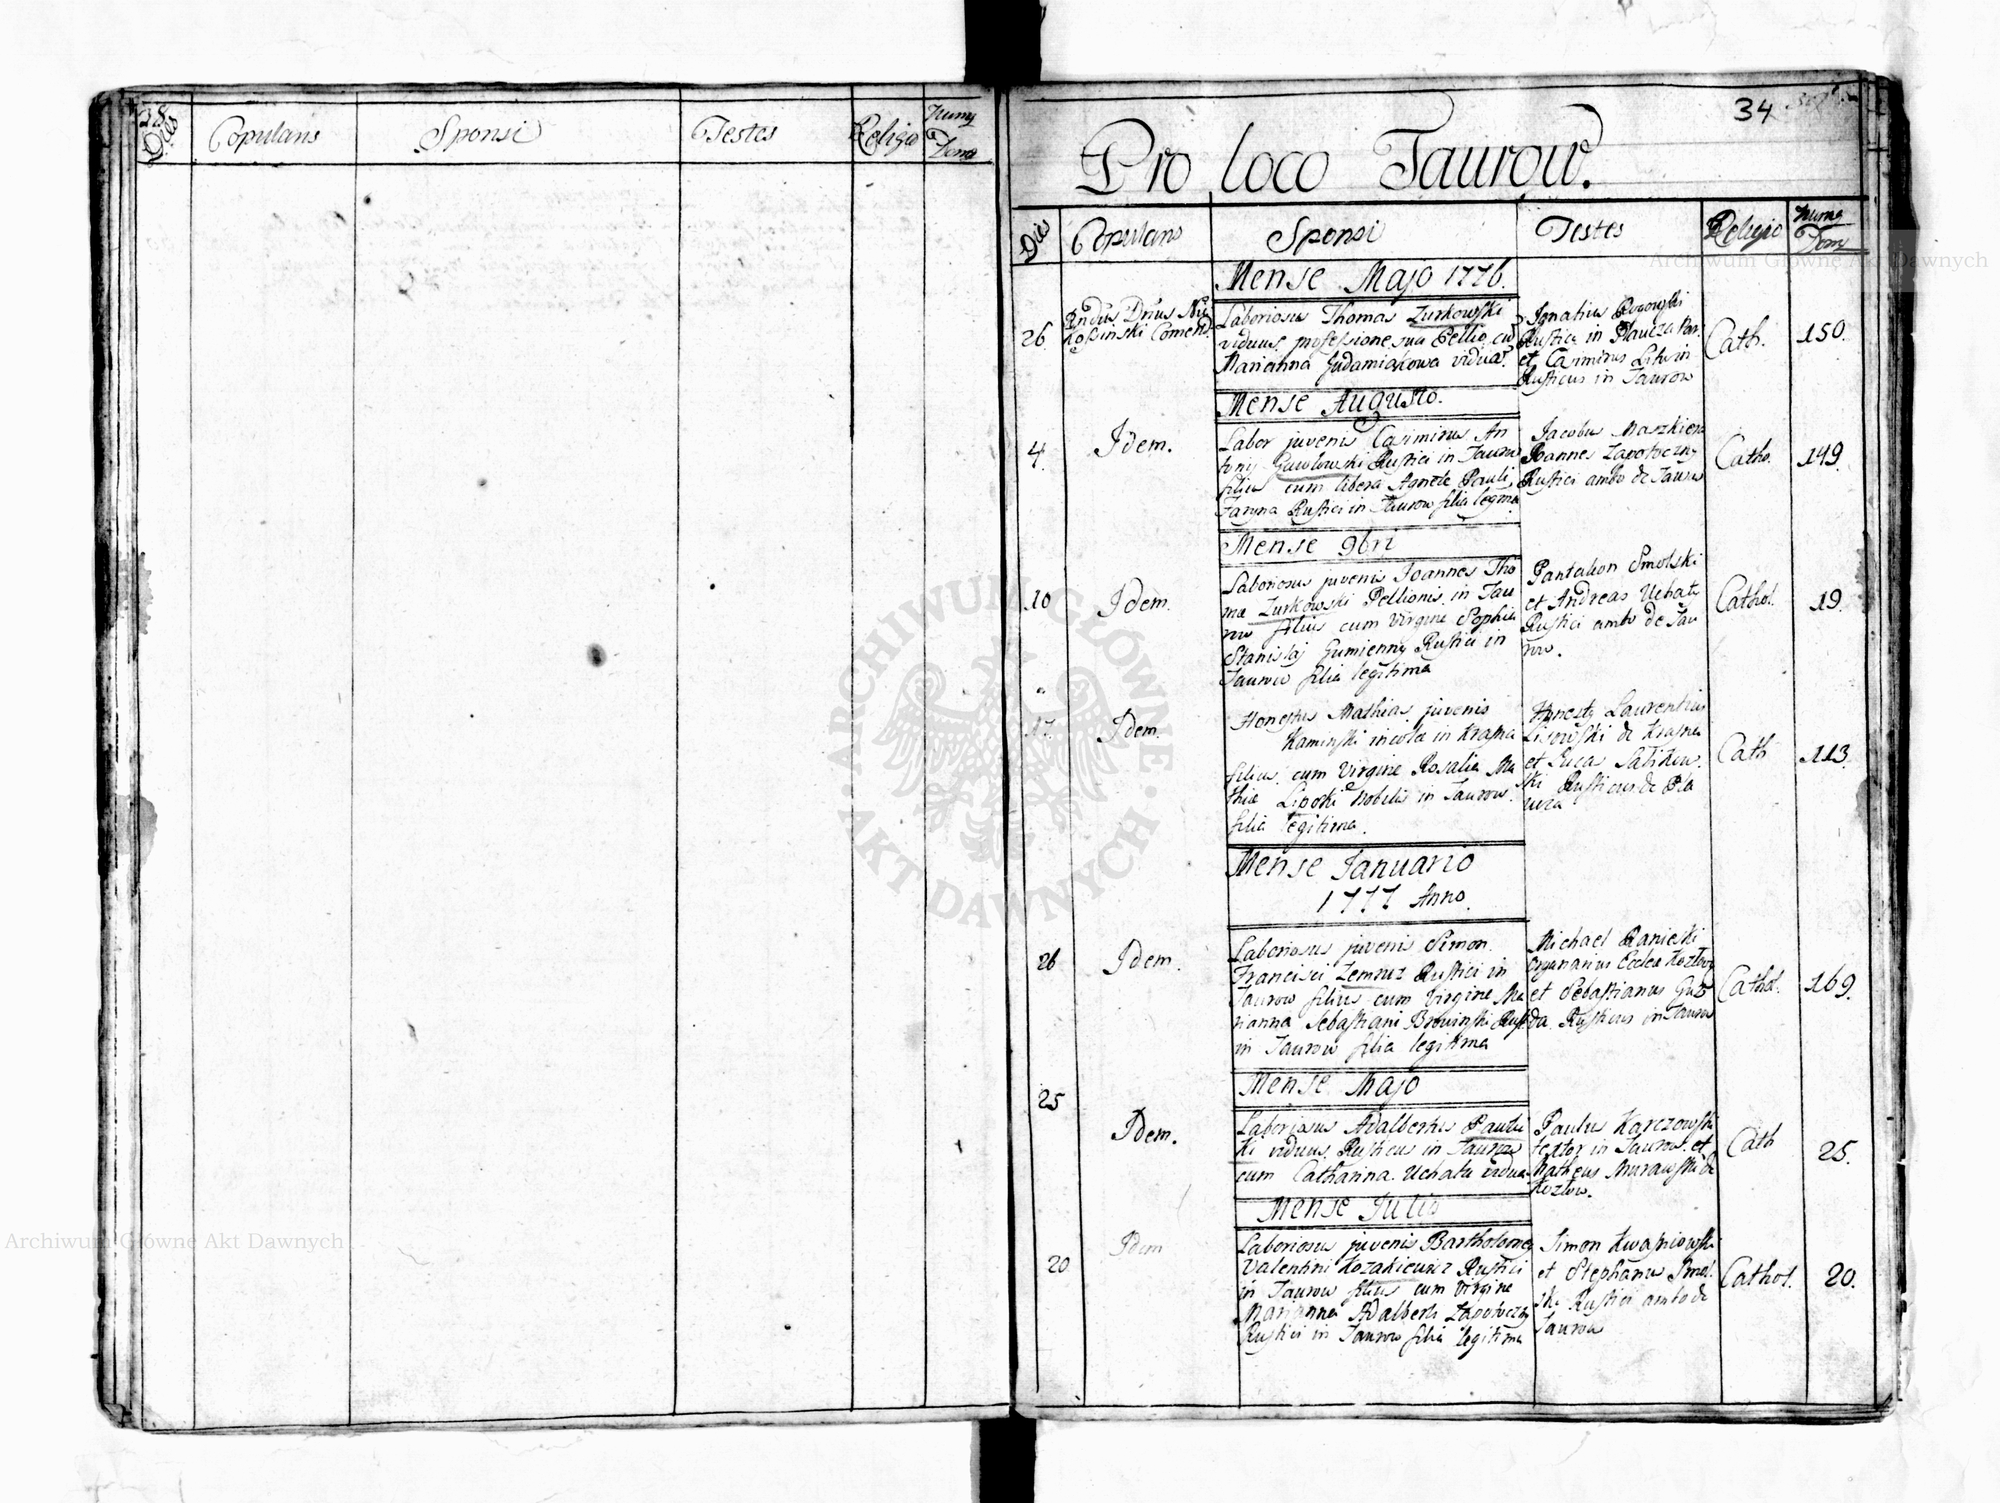 Dies
Copulans
Sponsi
Testes
Religio
Numg
Dom
34
Pro loco Taurow.
Dies
Copulans
Sponsi
Testes
Religio
Numg
Domg
Mense Majo 1776.
26
Kosinski Comend.
Laboriosus Thomas Zurkowski
viduus professione sua Pellio cu
Marianna Gudamiakowa vidua.
Ignatius
Rustica in Plaucza
et Casimirus Litwin
Rusticus in Taurow
Cath.
150.
Mense Augusto.
4.
Idem.
Labor juvenis Casimirus An
tonij Rustici in Taurow
filius cum libera Agnete Pauli
Taryna Rustici in Taurow filia legma
Jacobus
Joannes Zapotoczny
Rustici ambo de Taurow
Catho.
149.
Mense 9bri
10
Idem.
Laboriosus juvenis Joannes Tho
mæ Zurkowski Pellionis in Tau
row filius cum Virgine Sophia
Stanislaj Gumienny Rustici in
Taurow filia legitima
Pantalion Smolski
et Andreas Uchats
Rustici ambo de Tau
row.
Cathol.
19.
17.
Idem.
Honestus Mathias juvenis
Kaminski incola in Krasna
filius cum Virgine Rosalia Ma
thiæ Lipski Nobilis in Taurow
filia legitima.
Honestg Laurentius
Lisowski de Krasna
et Luca
ski Rusticus de Pla
ucza
Cath
113.
Mense Januario
1777 Anno.
26
Idem.
Laboriosus juvenis Simon
Francisci Zemruz Rustici in
Taurow filius cum Virgine Ma
rianna Sebastiani Browinski Rust
in Taurow filia legitima
Michael Raniecki
Organarius Eccleæ Kozlov
et Sebastianus Guz
da Rusticus in Taurow
Cathol.
169.
Mense Majo
25
Idem.
Laboriosus Adalbertus Pauli
ki viduus Rusticus in Taurow
cum Catharina Uchata vidua
Paulus Karczowski
textor in Taurow et
Matheus Murawski de
Kozlow.
Cath
25.
Mense Julio
20
Idem
Laboriosus juvenis Bartholomeg
Valentini Kozakiewicz Rustici
in Taurow filius cum Virgine
Marianna Adalberti Zapotoczny
Rustici in Taurow filia legitima
Simon Kwasniowski
et Stephanus Smol
ski Rustici ambo de
Taurow
Cathol.
20.
Archiwum Główne Akt Dawnych
ARCHIWUM GŁÓWNE
AKT DAWNYCH
Archiwum Główne Akt Dawnych